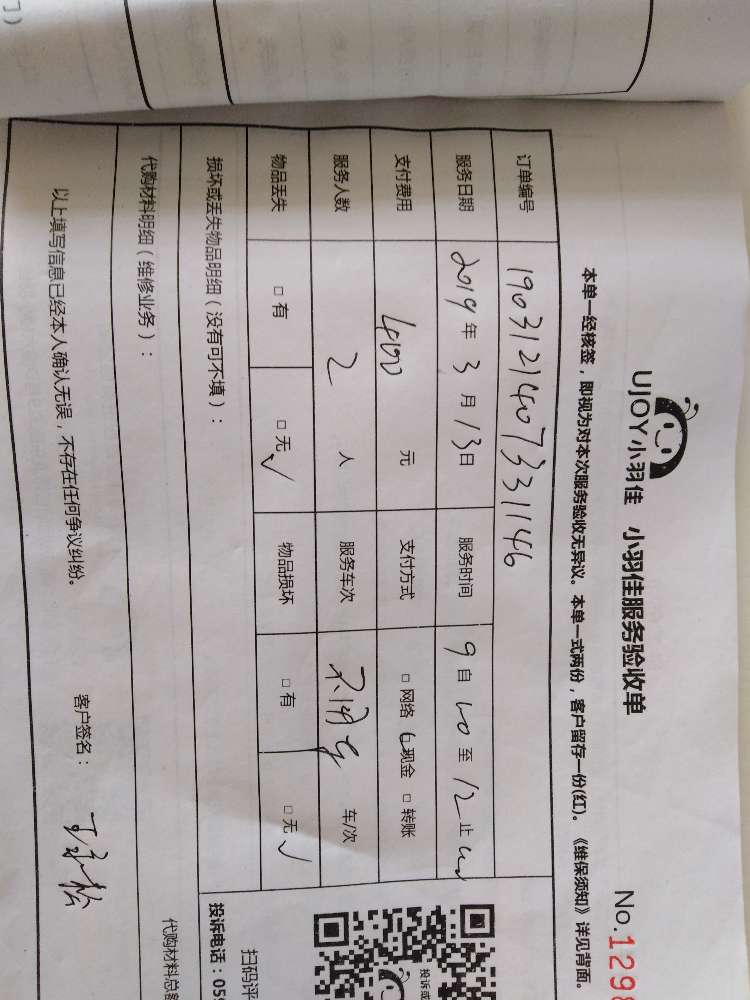 UJOY小羽佳 小羽佳服务验收单 No.1298
本单一经核签，即视为对本次服务验收无异议。本单一式两份，客户留存一份(红)。《维保须知》详见背面。
订单编号 19031214073331146
服务日期 2019年3月13日 服务时间 9自00至12止00
支付费用 400元 支付方式 □网络 □现金 □转账
服务人数 2人 服务车次 不用车 车/次
物品丢失 □有 □无√ 物品损坏 □有 □无√
损坏或丢失物品明细（没有可不填）：
代购材料明细（维修业务）：
代购材料总额
以上填写信息已经本人确认无误，不存在任何争议纠纷。 客户签名：
投诉或
扫码评
投诉电话：059